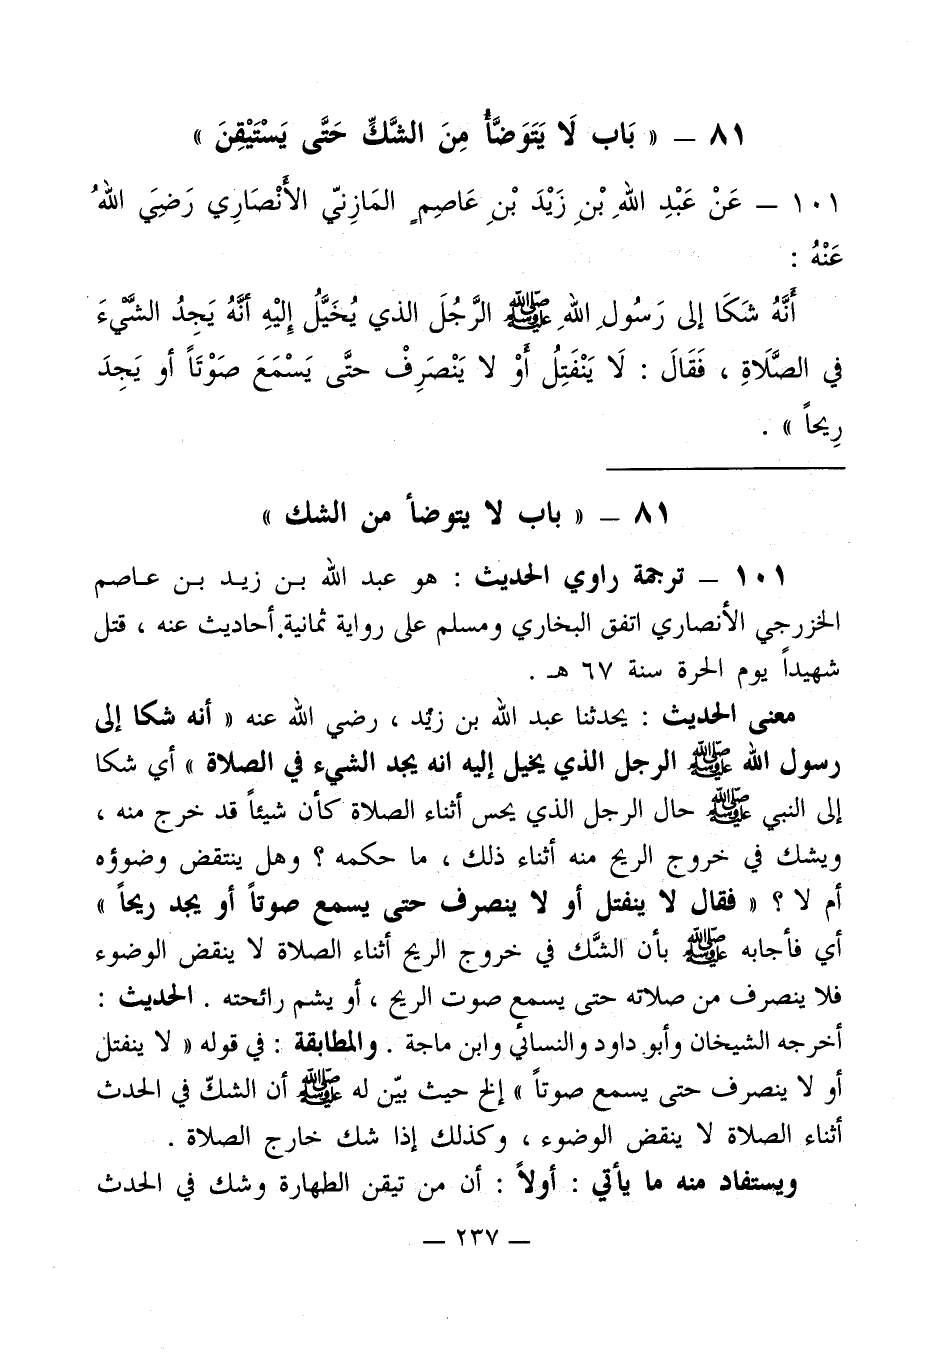 ٨١ – « بَاب لَا يَتَوَضَّأُ مِنَ الشَّكِّ حَتَّى يَسْتَيْقِنَ »
١٠١ – عَنْ عَبْدِ اللهِ بْنِ زَيْدَ بْنِ عَاصِمٍ المَازِنيّ الأَنْصَارِي رَضِيَ اللهُ
عَنْهُ :
أَنَّهُ شَكَا إلى رَسُولِ اللهِ ﷺ الرَّجُلَ الذي يُخَيَّلُ إِلَيْهِ أنَّهُ يَجِدُ الشَّيْءَ
في الصَّلَاةِ ، فَقَالَ : لَا يَنْفَتِلُ أَوْ لا يَنْصَرِفْ حتَّى يَسْمَعَ صَوْتَاً أو يَجِدَ
رِيحاً » .
٨١ – « باب لا يتوضأ من الشك »
١٠١ – ترجمة راوي الحديث : هو عبد الله بن زيد بن عاصم
الخزرجي الأنصاري اتفق البخاري ومسلم على رواية ثمانية أحاديث عنه ، قتل
شهيداً يوم الحرة سنة ٦٧ هـ .
معنى الحديث : يحدثنا عبد الله بن زيْد ، رضي الله عنه « أنه شكا إلى
رسول الله ﷺ الرجل الذي يخيل إليه انه يجد الشيء في الصلاة » أي شكا
إلى النبي ﷺ حال الرجل الذي يحس أثناء الصلاة كأن شيئاً قد خرج منه ،
ويشك في خروج الريح منه أثناء ذلك ، ما حكمه ؟ وهل ينتقض وضوؤه
أم لا ؟ « فقال لا ينفتل أو لا ينصرف حتى يسمع صوتاً أو يجد ريحاً »
أي فأجابه ﷺ بأن الشَّك في خروج الريح أثناء الصلاة لا ينقض الوضوء
فلا ينصرف من صلاته حتى يسمع صوت الريح ، أو يشم رائحته . الحديث :
أخرجه الشيخان وأبو داود والنسائي وابن ماجة . والمطابقة : في قوله « لا ينفتل
أو لا ينصرف حتى يسمع صوتاً » إلخ حيث بيّن له ﷺ أن الشكّ في الحدث
أثناء الصلاة لا ينقض الوضوء ، وكذلك إذا شك خارج الصلاة .
ويستفاد منه ما يأتي : أولاً : أن من تيقن الطهارة وشك في الحدث
– ٢٣٧ –